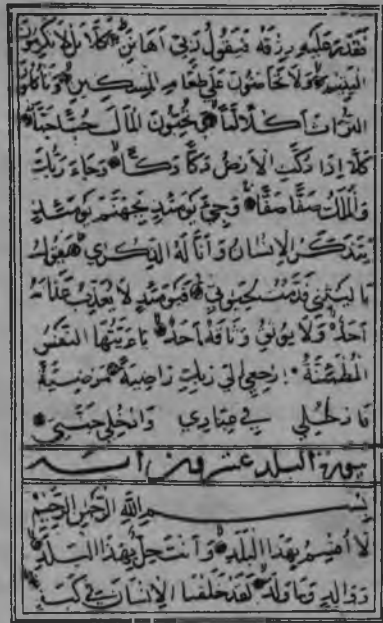 فَقَدَرَ عَلَيْهِ رِزْقَهُ فَيَقُولُ رَبِّي أَهَانَنِ كَلَّا بَل لَا تُكْرِمُونَ
الْيَتِيمَ وَلَا تَحَاضُّونَ عَلَى طَعَامِ الْمِسْكِينِ وَتَأْكُلُونَ
التُّرَاثَ أَكْلًا لَمًّا وَتُحِبُّونَ الْمَالَ حُبًّا جَمًّا
كَلَّا إِذَا دُكَّتِ الْأَرْضُ دَكًّا دَكًّا وَجَاءَ رَبُّكَ
وَالْمَلَكُ صَفًّا صَفًّا وَجِيءَ يَوْمَئِذٍ بِجَهَنَّمَ يَوْمَئِذٍ
يَتَذَكَّرُ الْإِنْسَانُ وَأَنَّى لَهُ الذِّكْرَى يَقُولُ
يَا لَيْتَنِي قَدَّمْتُ لِحَيَاتِي فَيَوْمَئِذٍ لَا يُعَذِّبُ عَذَابَهُ
أَحَدٌ وَلَا يُوثِقُ وَثَاقَهُ أَحَدٌ يَا أَيَّتُهَا النَّفْسُ
الْمُطْمَئِنَّةُ ارْجِعِي إِلَى رَبِّكِ رَاضِيَةً مَرْضِيَّةً
فَادْخُلِي فِي عِبَادِي وَادْخُلِي جَنَّتِي
سورة البلد عشرون آية
بِسْمِ اللَّهِ الرَّحْمَنِ الرَّحِيمِ
لَا أُقْسِمُ بِهَذَا الْبَلَدِ وَأَنْتَ حِلٌّ بِهَذَا الْبَلَدِ
وَوَالِدٍ وَمَا وَلَدَ لَقَدْ خَلَقْنَا الْإِنْسَانَ فِي كَبَدٍ